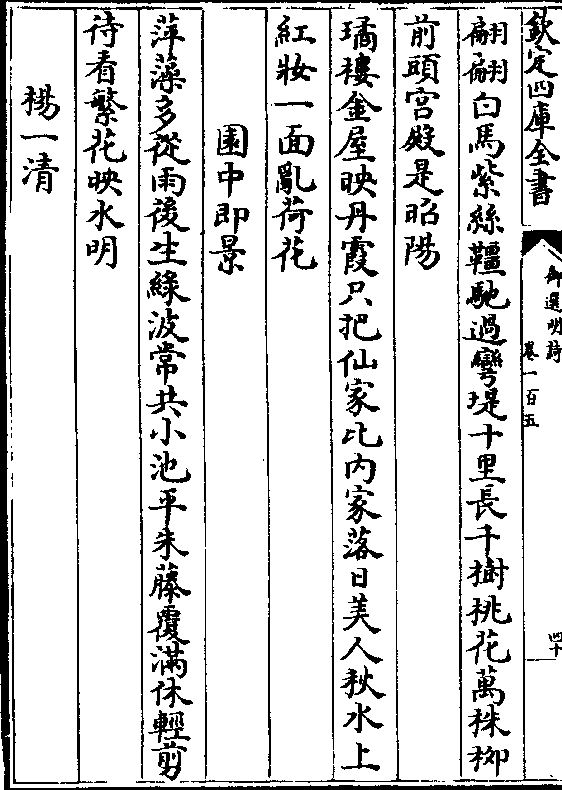 欽定四庫全書
御選明詩
卷一百五
四十
翩翩白馬紫絲韁馳過彎堤十里長千樹桃花萬株栁
前頭宫殿是昭陽
璚樓金屋映丹霞只把仙家比内家落日美人秋水上
紅妝一面亂荷花
園中即景
萍藻多從雨後生綠波常共小池平朱藤覆滿休輕剪
待看繁花映水明
楊一清